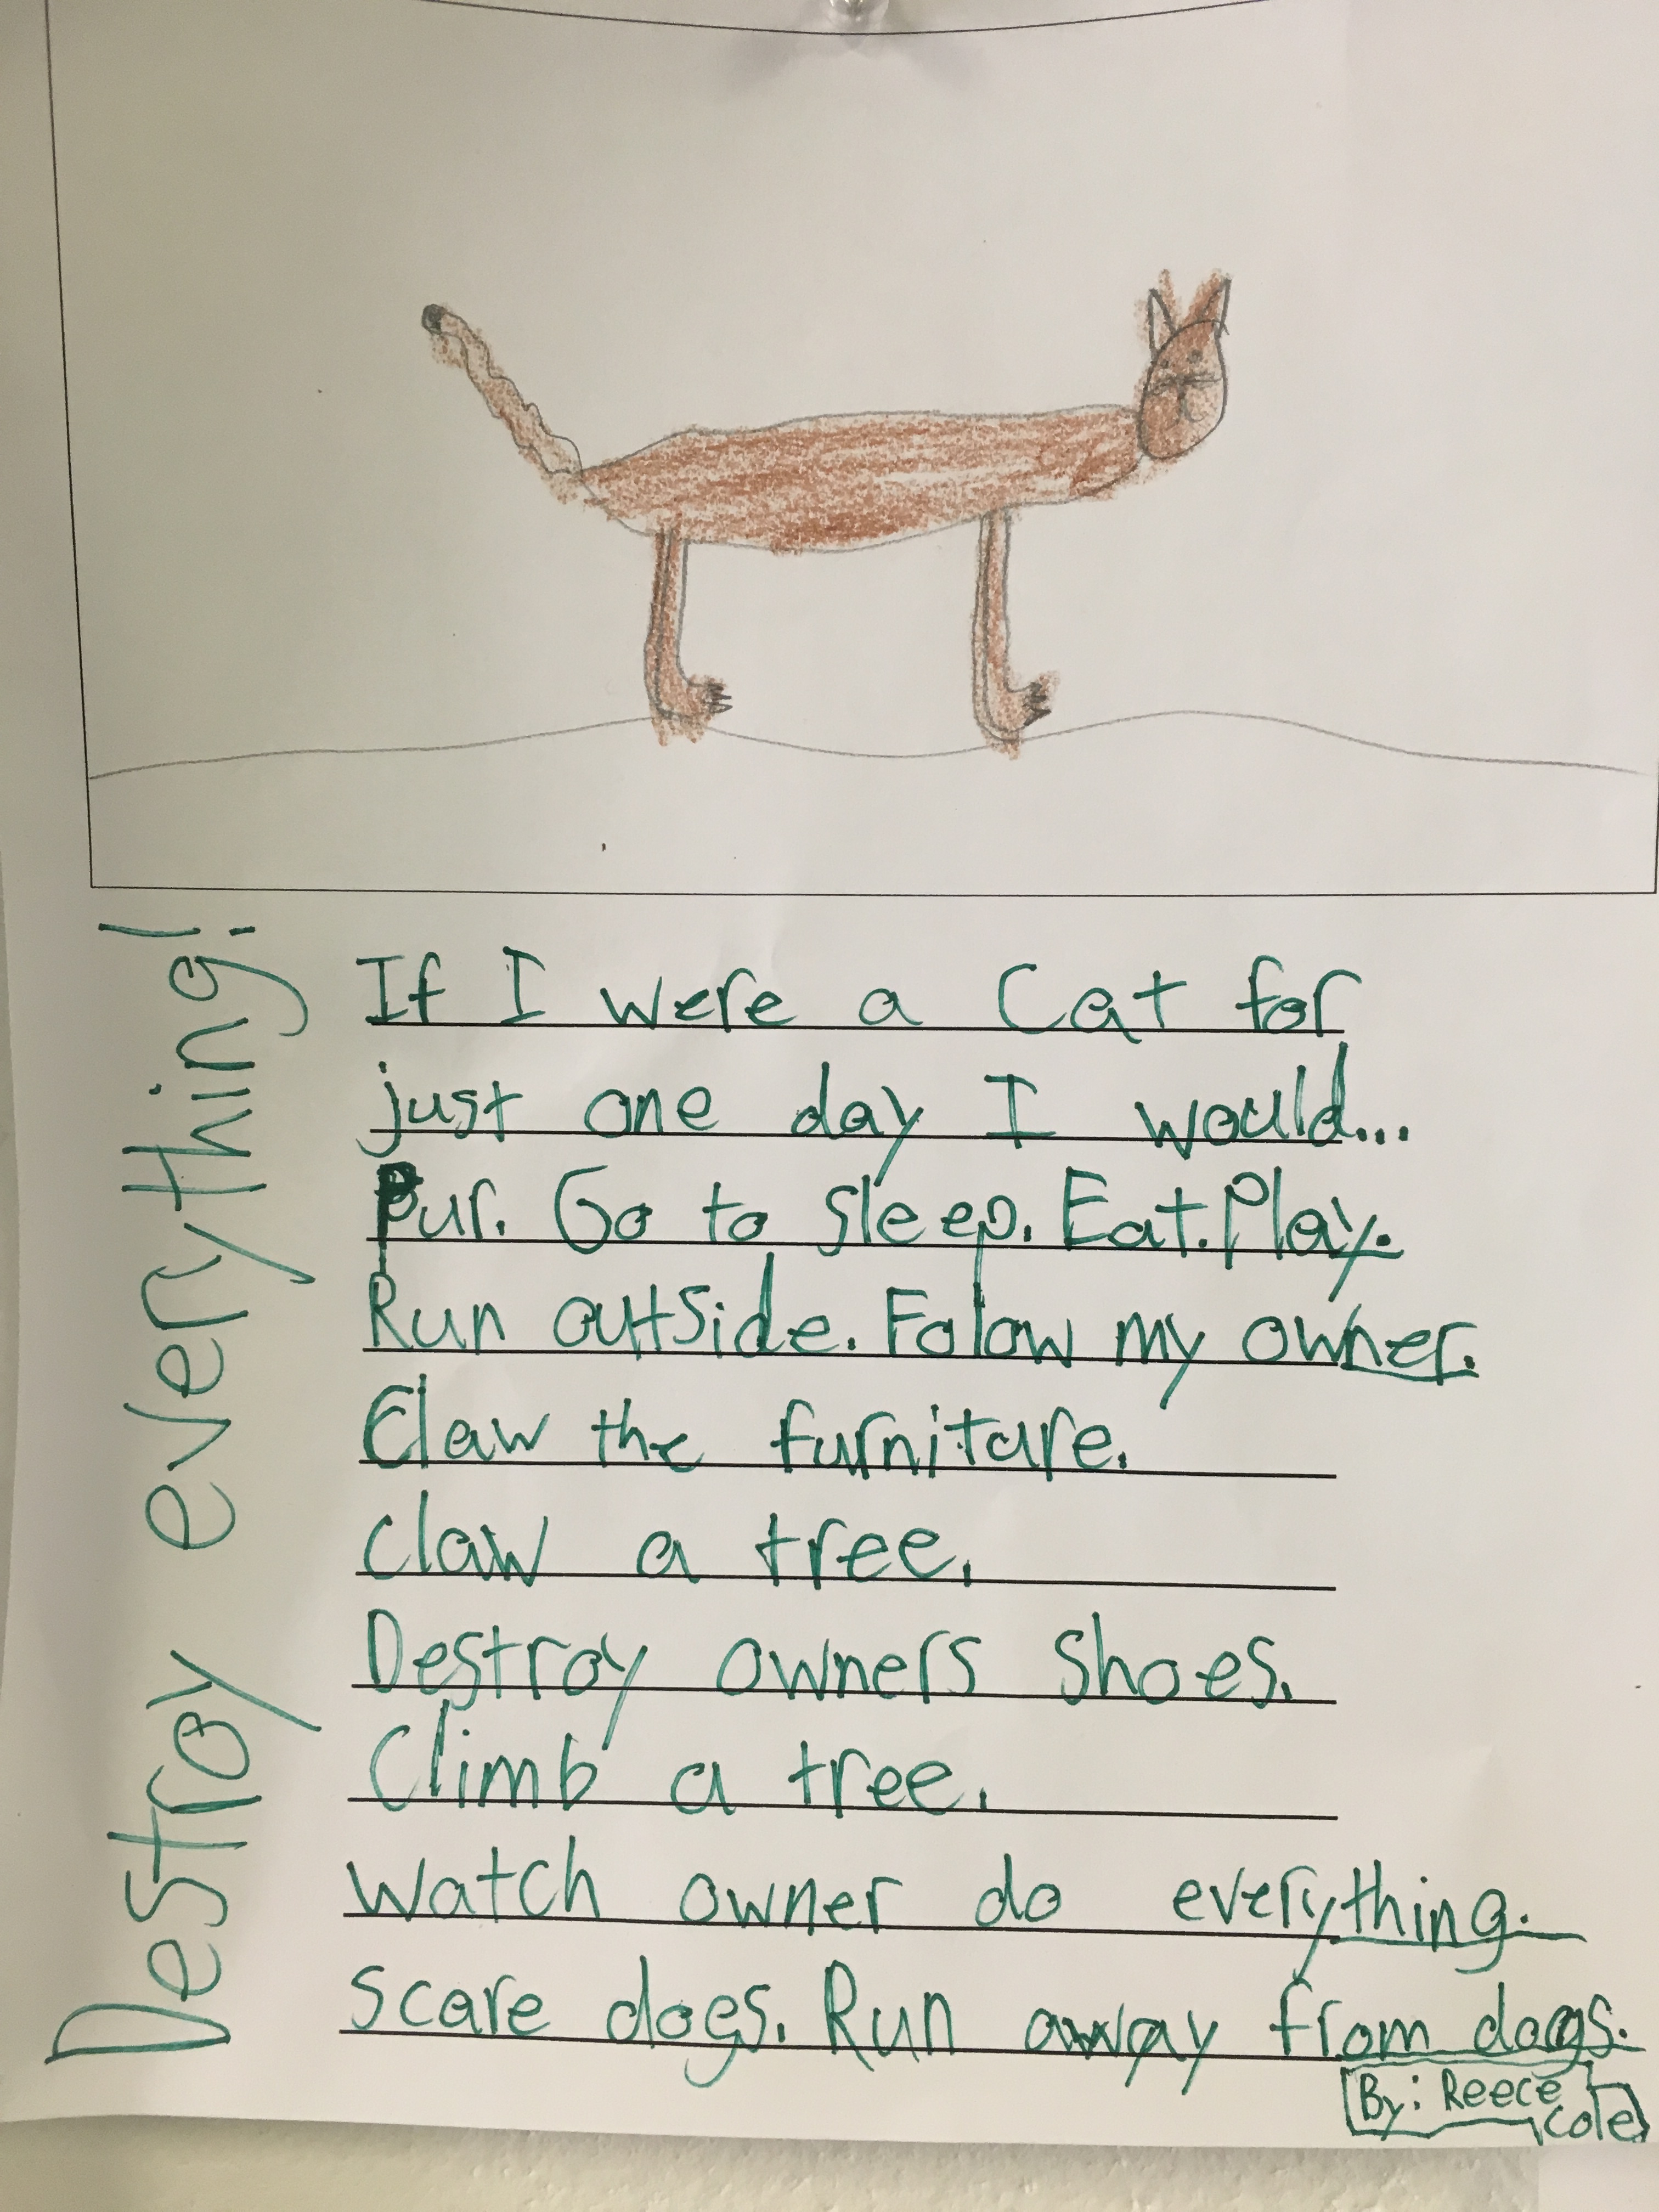 If I were a Cat for
just one day I would...
Pur. Go to sleep. Eat. Play.
Run outside. Folow my owner.
Claw the furniture.
Claw a tree.
Destroy owners shoes.
Climb a tree.
Watch owner do everything.
scare dogs. Run away from dogs.
Destroy everything!
By: Reece
Cole